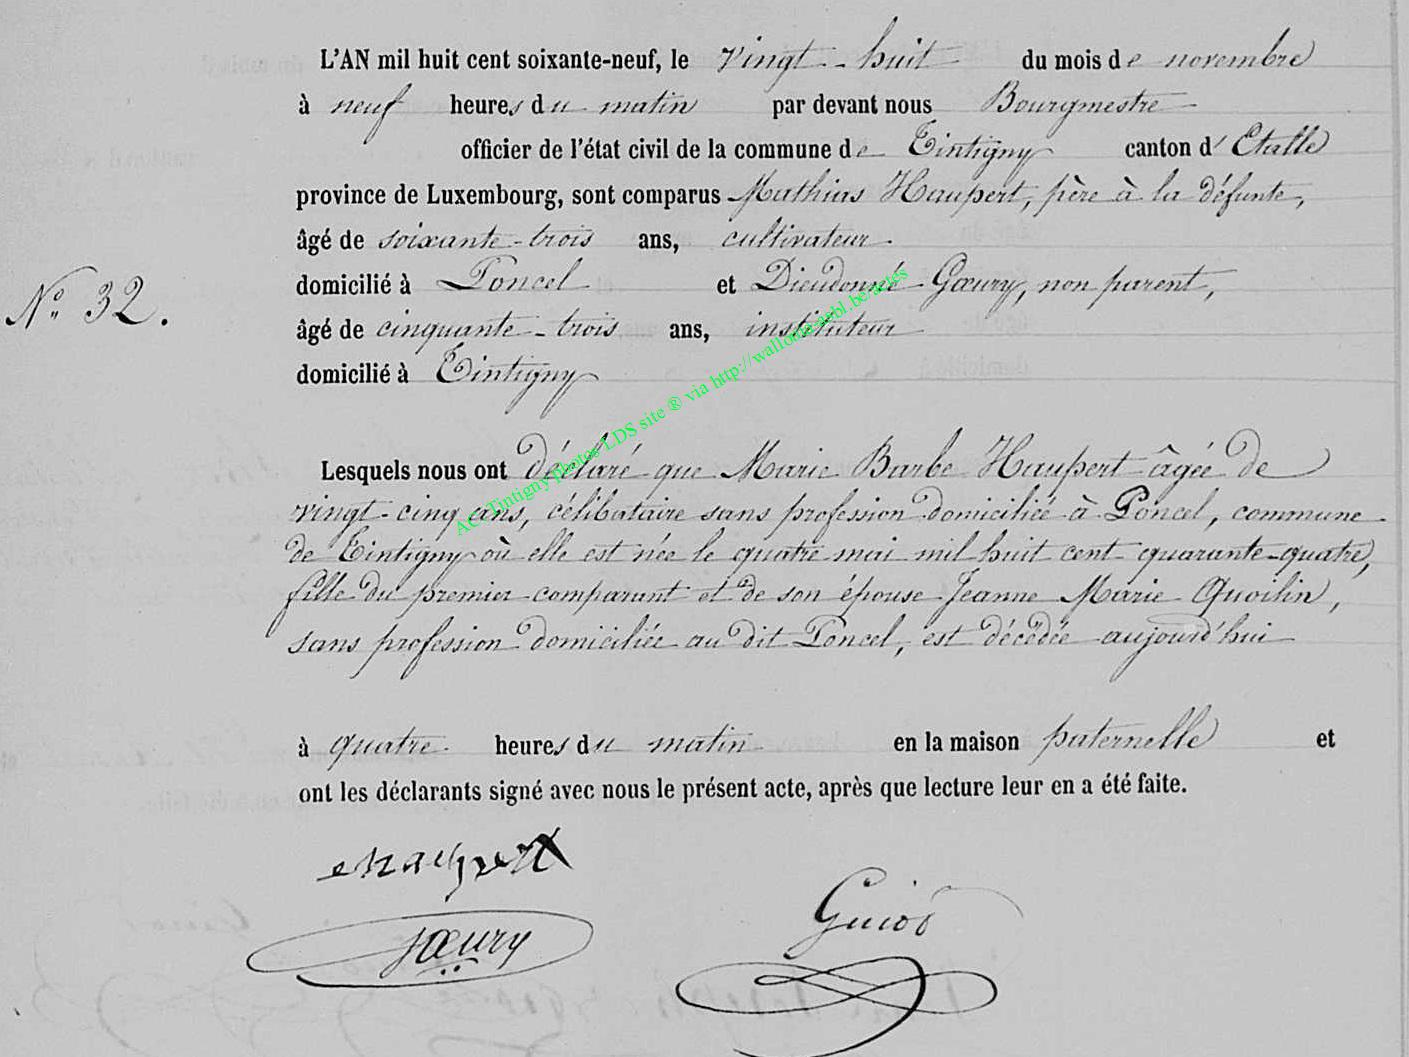 L'AN mil huit cent soixante-neuf, le vingt-huit du mois de novembre
à neuf heures du matin par devant nous Bourgmestre
officier de l'état civil de la commune de Tintigny canton d'Etalle
province de Luxembourg, sont comparus Mathias Haupert, père à la défunte,
âgé de soixante-trois ans, cultivateur
domicilié à Poncel et Dieudonné Gœury, non parent,
N° 32.
âgé de cinquante-trois ans, instituteur
domicilié à Tintigny
AC Tintigny photos LDS site ® via http://wallonia-asbl.be/actes
Lesquels nous ont déclaré que Marie Barbe Haupert âgée de
vingt-cinq ans, célibataire sans profession domiciliée à Poncel, commune
de Tintigny où elle est née le quatre mai mil huit cent quarante-quatre,
fille du premier comparant et de son épouse Jeanne Marie Quoilin,
sans profession domiciliée au dit Poncel, est décédée aujourd'hui
à quatre heures du matin en la maison paternelle et
ont les déclarants signé avec nous le présent acte, après que lecture leur en a été faite.
Haupert
Gœury